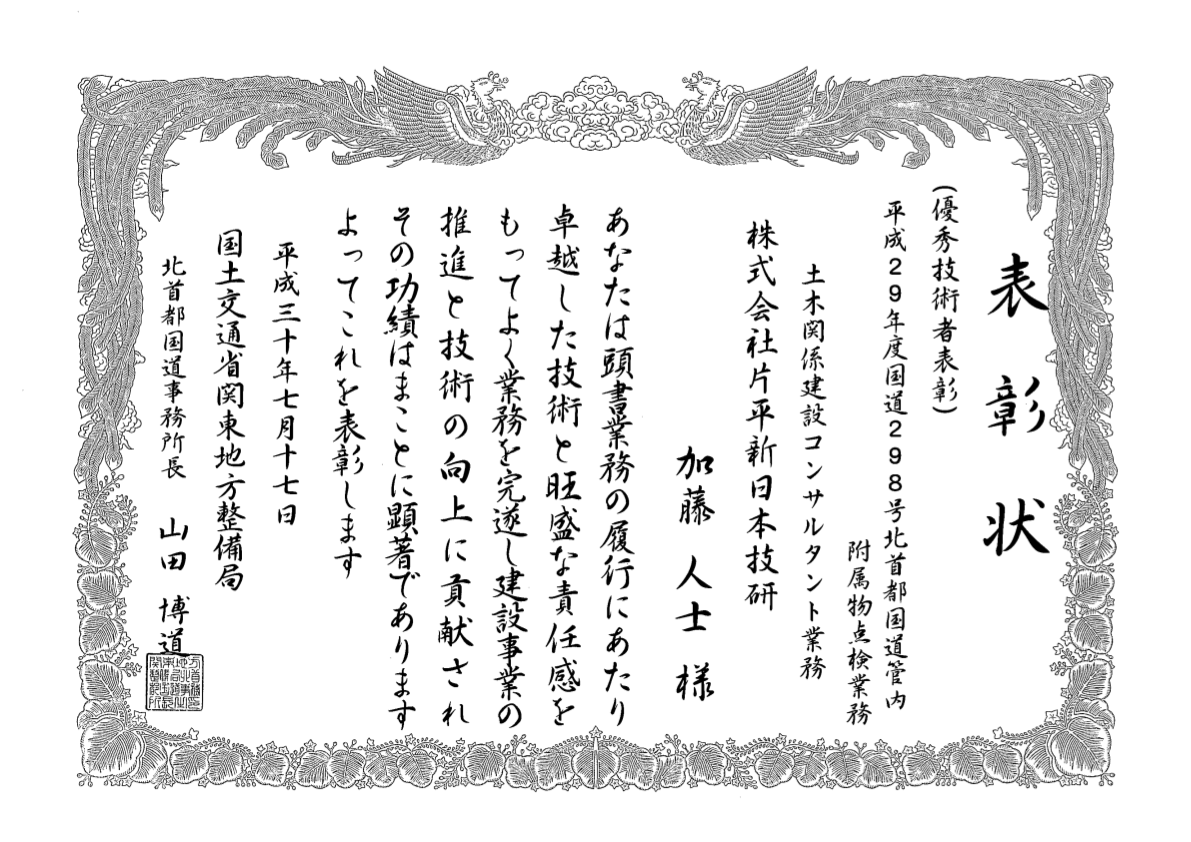 表彰状
(優秀技術者表彰)
平成29年度国道298号北首都国道管内
附属物点検業務
土木関係建設コンサルタント業務
株式会社片平新日本技研
加藤人士様
あなたは頭書業務の履行にあたり
卓越した技術と旺盛な責任感を
もってよく業務を完遂し建設事業の
推進と技術の向上に貢献され
その功績はまことに顕著であります
よってこれを表彰します
平成三十年七月十七日
国土交通省関東地方整備局
北首都国道事務所長 山田 博道